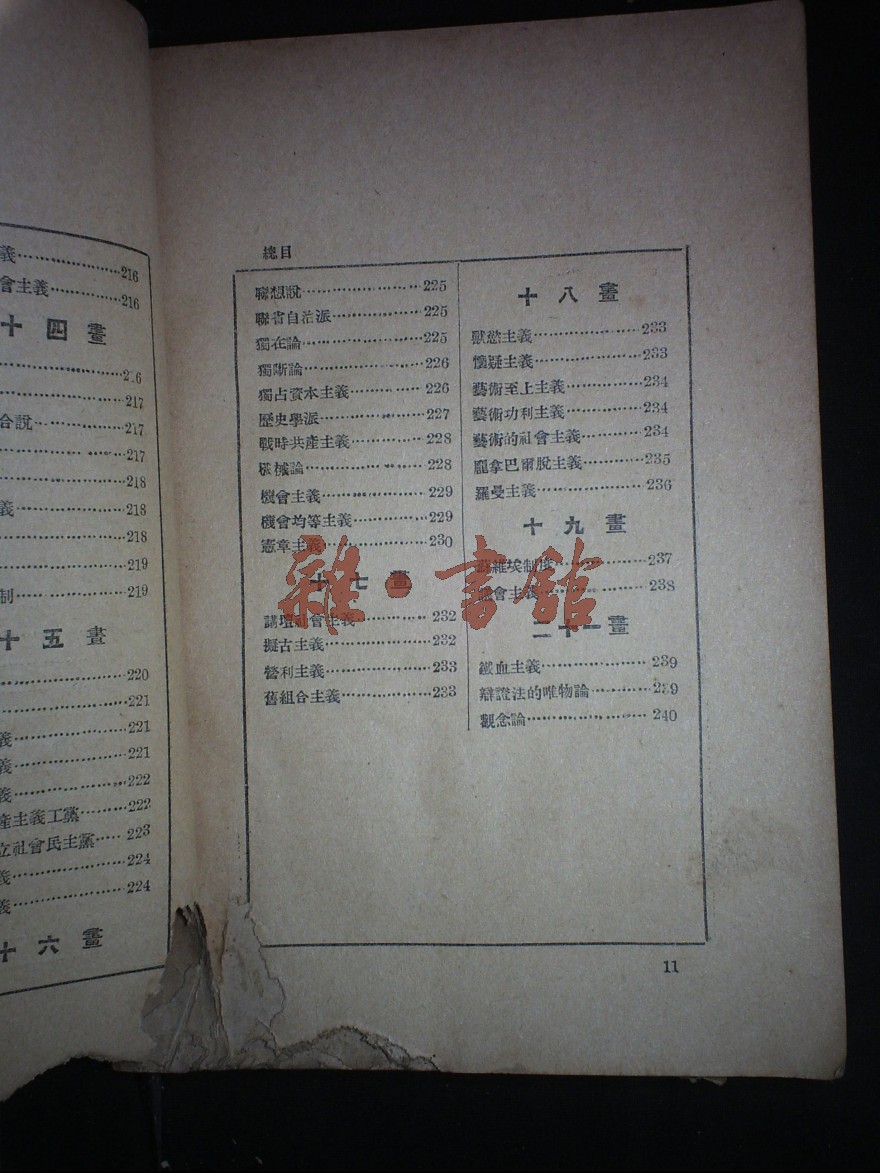 義……216
會主義……216
十四畫
……217
合說……217
……217
……218
義……218
……218
……219
制……219
十五畫
……220
……221
義……221
義……221
義……222
產主義工黨……222
立社會民主黨……223
義……224
義……224
十六畫
總目
聯想說……225
聯省自治派……225
獨在論……225
獨斷論……226
獨占資本主義……226
歷史學派……227
戰時共產主義……228
機械論……228
機會主義……229
機會均等主義……229
憲章主義……230
十七畫
講壇社會主義……232
擬古主義……232
營利主義……233
舊組合主義……233
十八畫
獸慾主義……233
懷疑主義……233
藝術至上主義……234
藝術功利主義……234
藝術的社會主義……234
龐拿巴爾脫主義……235
羅曼主義……236
十九畫
蘇維埃制度……237
會主義……238
二十一畫
鐵血主義……239
辯證法的唯物論……239
觀念論……240
11
雜·書館